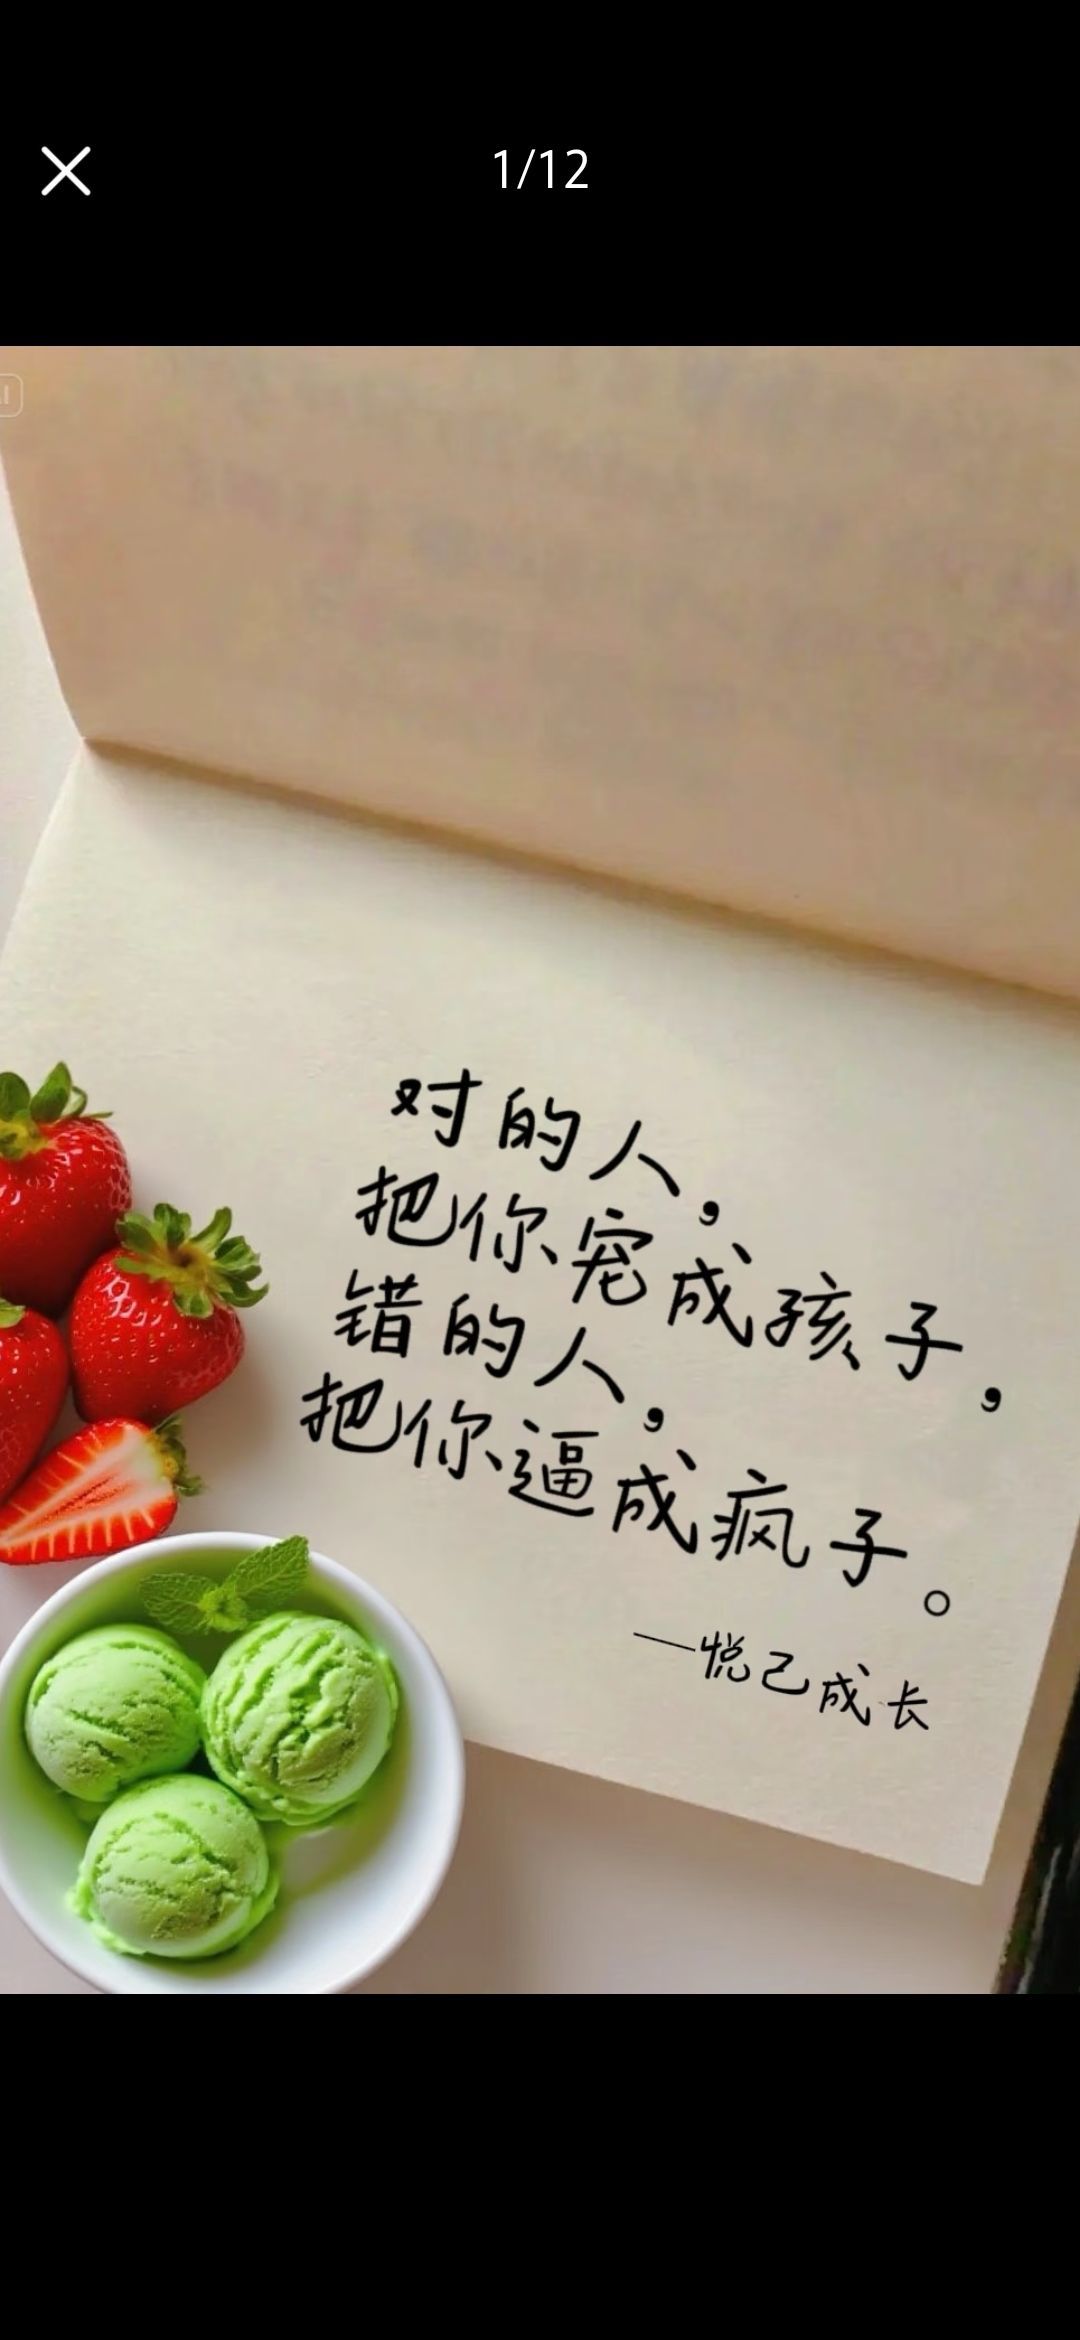 1/12
对的人，
把你宠成孩子，
错的人，
把你逼成疯子。
—悦己成长